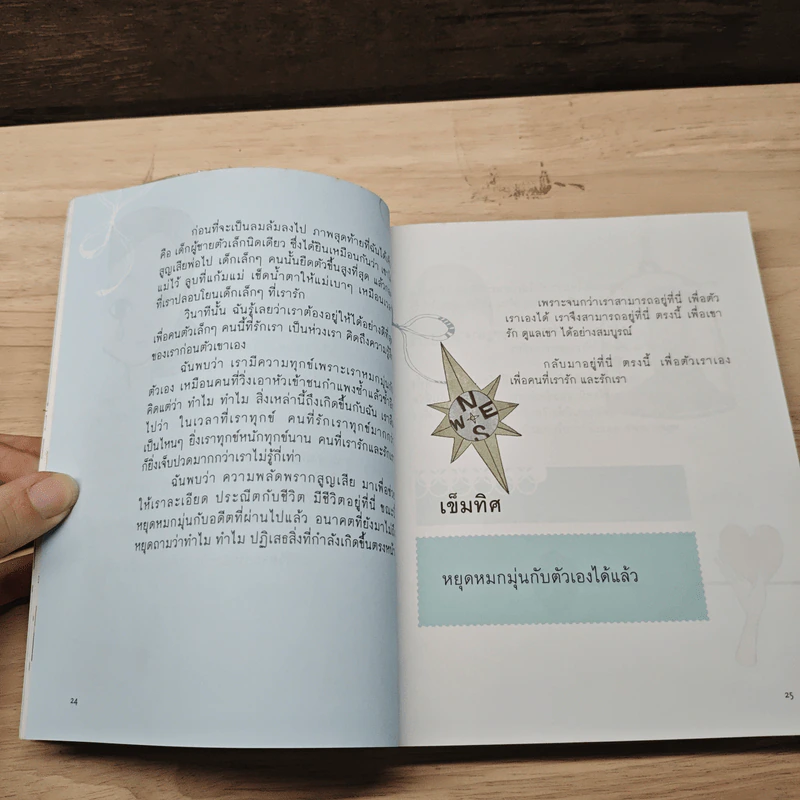 ก่อนที่จะเป็นลมล้มลงไป ภาพสุดท้ายที่ฉันได้
คือ เด็กผู้ชายตัวเล็กนิดเดียว ซึ่งได้ยินเหมือนกันว่า เขา
สูญเสียพ่อไป เด็กเล็กๆ คนนั้นยืดตัวขึ้นสูงที่สุด แล้ว
แม่ไว้ ลูบที่แก้มแม่ เช็ดน้ำตาให้แม่เบาๆ เหมือน
ที่เราปลอบโยนเด็กเล็กๆ ที่เรารัก
วินาทีนั้น ฉันรู้เลยว่าเราต้องอยู่ให้ได้อย่างดีที่สุด
เพื่อคนตัวเล็กๆ คนนี้ที่รักเรา เป็นห่วงเรา คิดถึงความรู้สึก
ของเราก่อนตัวเขาเอง
ฉันพบว่า เรามีความทุกข์เพราะเราหมกมุ่นกับ
ตัวเอง เหมือนคนที่วิ่งเอาหัวเข้าชนกำแพงซ้ำแล้วซ้ำ
คิดแต่ว่า ทำไม ทำไม สิ่งเหล่านี้ถึงเกิดขึ้นกับฉัน เรา
ไปว่า ในเวลาที่เราทุกข์ คนที่รักเราทุกข์มากกว่า
เป็นไหนๆ ยิ่งเราทุกข์หนักทุกข์นาน คนที่เรารักและรัก
ก็ยิ่งเจ็บปวดมากกว่าเราไม่รู้กี่เท่า
ฉันพบว่า ความพลัดพรากสูญเสีย มาเพื่อ
ให้เราละเอียด ประณีตกับชีวิต มีชีวิตอยู่ที่นี่
หยุดหมกมุ่นกับอดีตที่ผ่านไปแล้ว อนาคตที่ยังมาไม่
หยุดถามว่าทำไม ทำไม ปฏิเสธสิ่งที่กำลังเกิดขึ้นตรงหน้า
24
เพราะจนกว่าเราสามารถอยู่ที่นี่ เพื่อตัว
เราเองได้ เราจึงสามารถอยู่ที่นี่ ตรงนี้ เพื่อเขา
รัก ดูแลเขา ได้อย่างสมบูรณ์
กลับมาอยู่ที่นี่ ตรงนี้ เพื่อตัวเราเอง
เพื่อคนที่เรารัก และรักเรา
N
W E
S
เข็มทิศ
หยุดหมกมุ่นกับตัวเองได้แล้ว
25